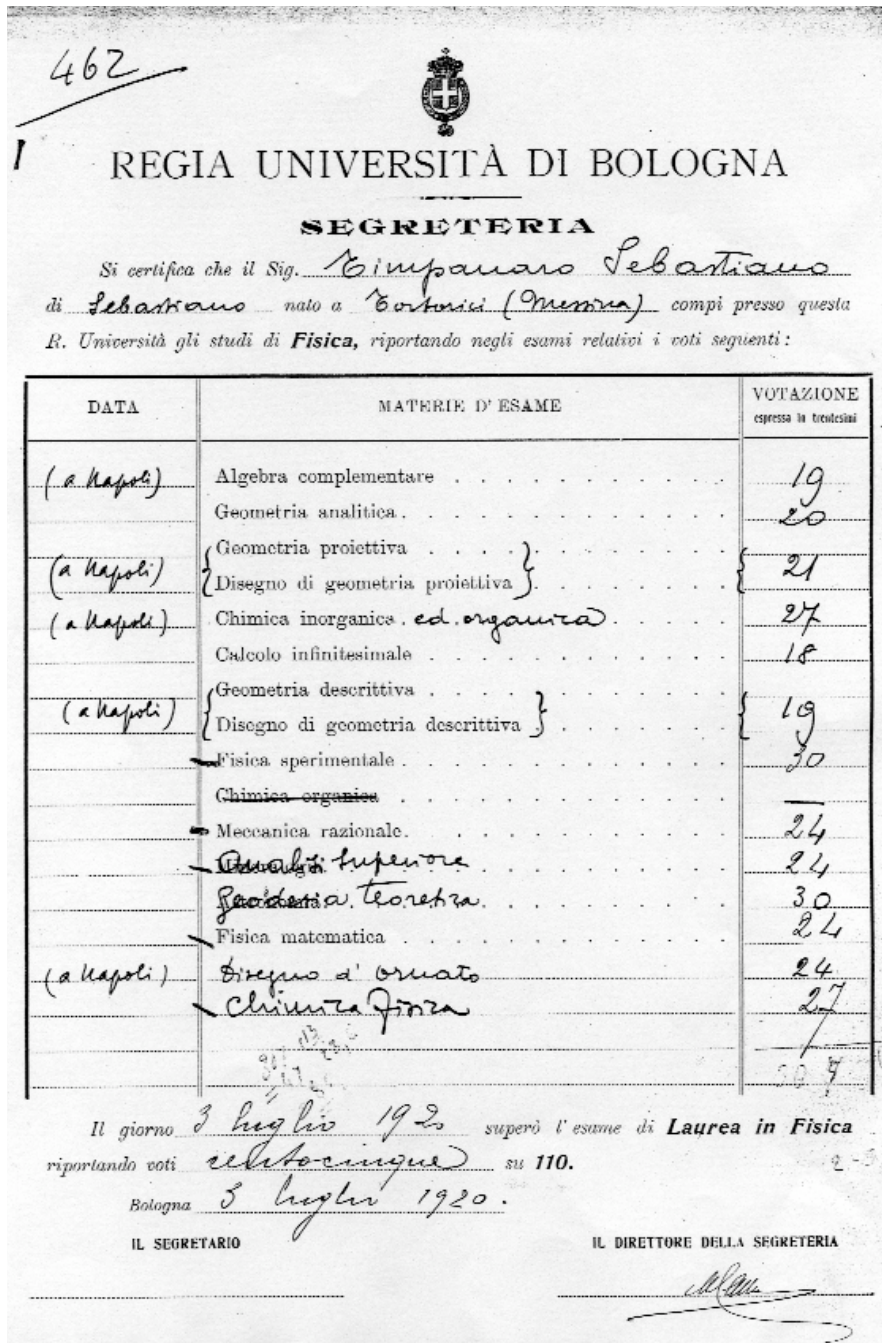 462
REGIA UNIVERSITÀ DI BOLOGNA
SEGRETERIA
Si certifica che il Sig. Timpanaro Sebastiano
di Sebastiano nato a Tortorici (Messina) compì presso questa
R. Università gli studi di Fisica, riportando negli esami relativi i voti seguenti:
DATA MATERIE D'ESAME VOTAZIONE
espressa in trentesimi
(a Napoli) Algebra complementare 19
Geometria analitica 20
Geometria proiettiva
(a Napoli) Disegno di geometria proiettiva 21
(a Napoli) Chimica inorganica ed organica 27
Calcolo infinitesimale 18
Geometria descrittiva
(a Napoli) Disegno di geometria descrittiva 19
Fisica sperimentale 30
Chimica organica —
Meccanica razionale 24
Analisi Superiore 24
Geodesia teoretica 30
Fisica matematica 24
(a Napoli) Disegno d'ornato 24
Chimica Fisica 27
Il giorno 3 luglio 1920 superò l'esame di Laurea in Fisica
riportando voti centocinque su 110.
Bologna 3 luglio 1920.
IL SEGRETARIO IL DIRETTORE DELLA SEGRETERIA